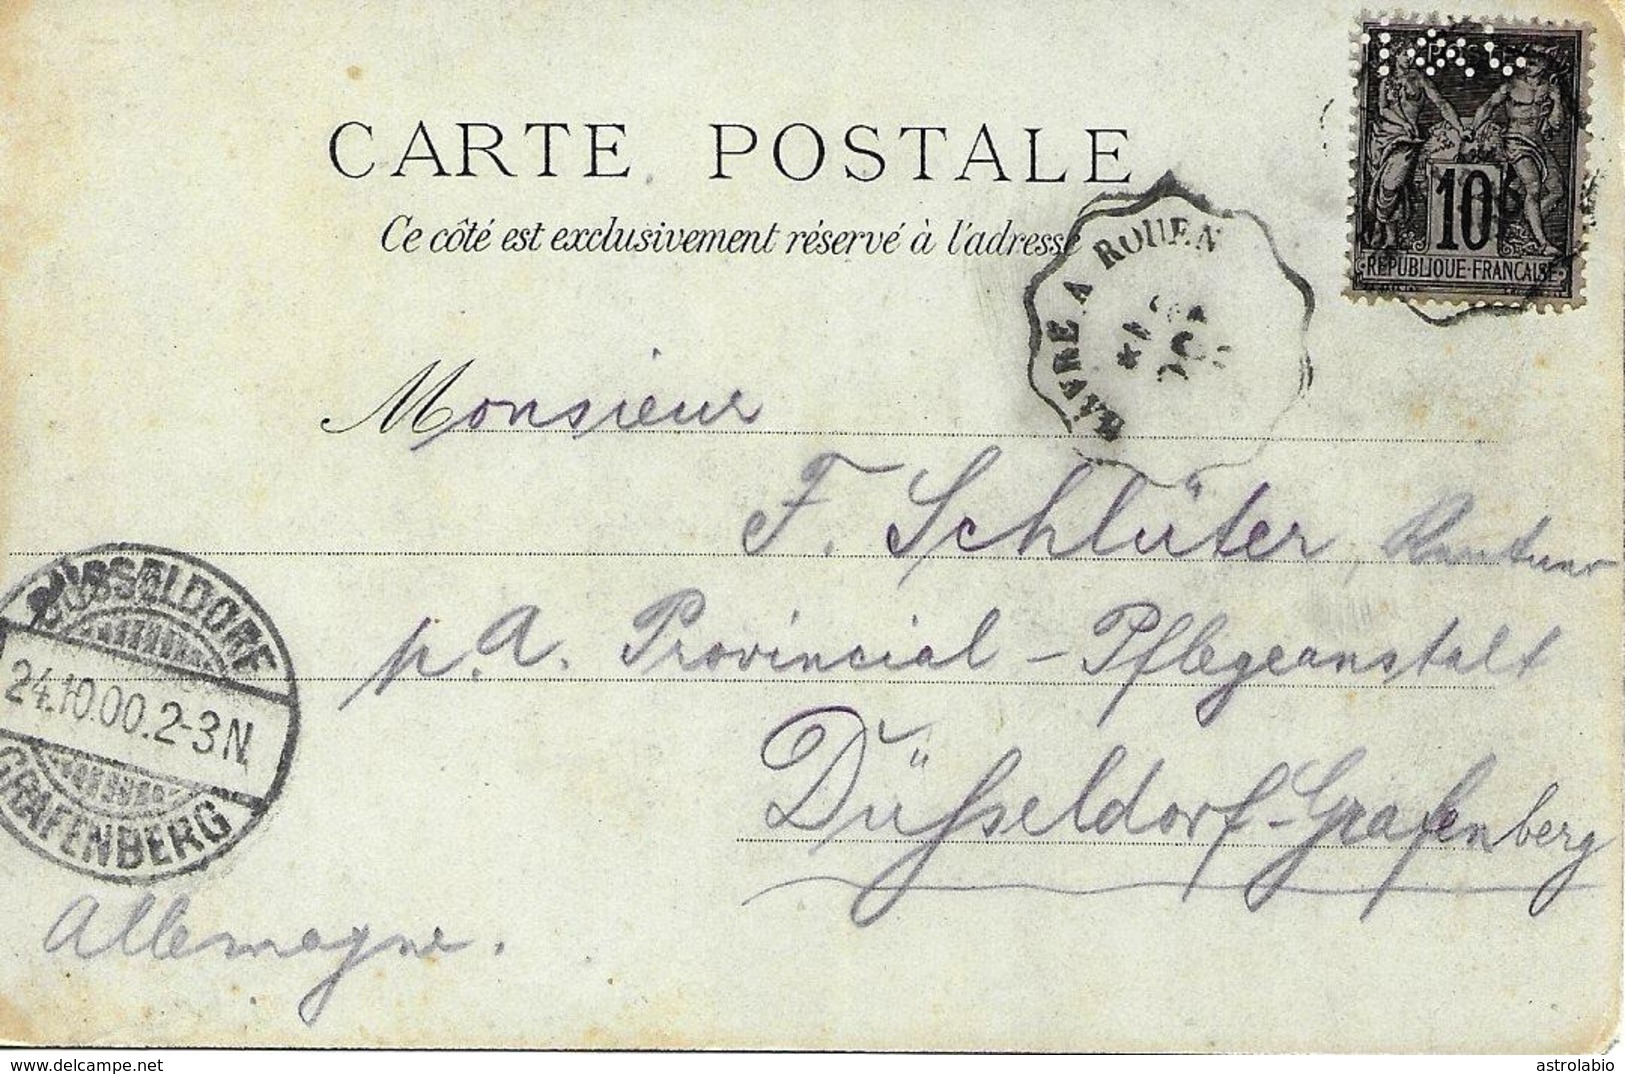 POSTES
10
REPUBLIQUE·FRANCAISE
CARTE POSTALE
Ce côté est exclusivement réservé à l'adresse
HAVRE A ROUEN
Monsieur
F. Schlüter, Rentner
p.A. Provincial-Pflegeanstalt
DÜSSELDORF
24.10.00.2-3N.
GRAFENBERG
Düsseldorf-Grafenberg
Allemagne.
www.delcampe.net
astrolabio